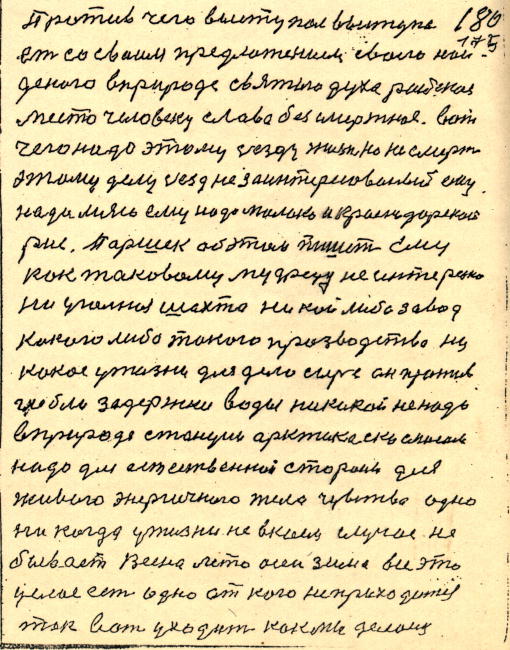 Против чего выступал выступа 180
ет со своим предложением своего най 175
деного в природе святого духа райское
место человеку слава бесмертное. Вот
чего надо этому уезду жизню не смерт
этому делу уезд не заинтересованый ему
нада мясо ему надо молоко и краснодарской
рис. Паршек об этом пишет Ему
как таковому мудрецу не интересно
ни угольноя шахта ни кой либо завод
какого либо такого прозводства ни
какое ужизни для дело сыре он против
гребли задержки воды никакой ненадо
в природе станции арктика
надо для естественной стороны для
живого энергичного тела чувства одно
ни когда ужизни не вкоем случае не
бывает Весна лето осен зима все это
целое ест одно от кого неприходится
так вот уходит как мы делаем